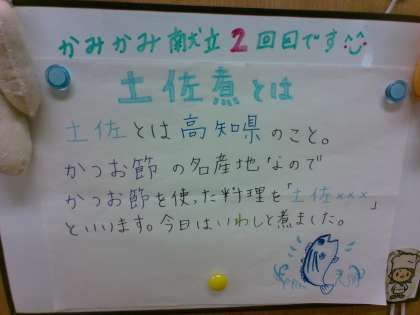 かみかみ献立2回目です
土佐煮とは
土佐とは高知県のこと。
かつお節の名産地なので
かつお節を使った料理を「土佐×××」
といいます。今日はいわしと煮ました。